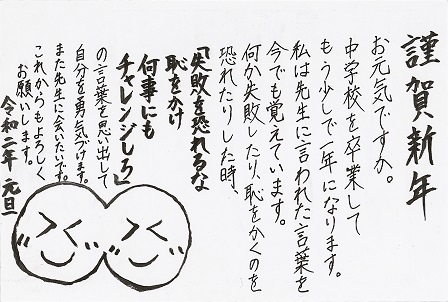 謹賀新年
お元気ですか。
中学校を卒業して
もう少しで一年になります。
私は先生に言われた言葉を
今でも覚えています。
何か失敗したり、恥をかくのを
恐れたりした時、
「失敗を恐れるな
恥をかけ
何事にも
チャレンジしろ」
の言葉を思い出して
自分を勇気づけます。
また先生に会いたいです。
これからもよろしく
お願いします。
令和二年 元旦